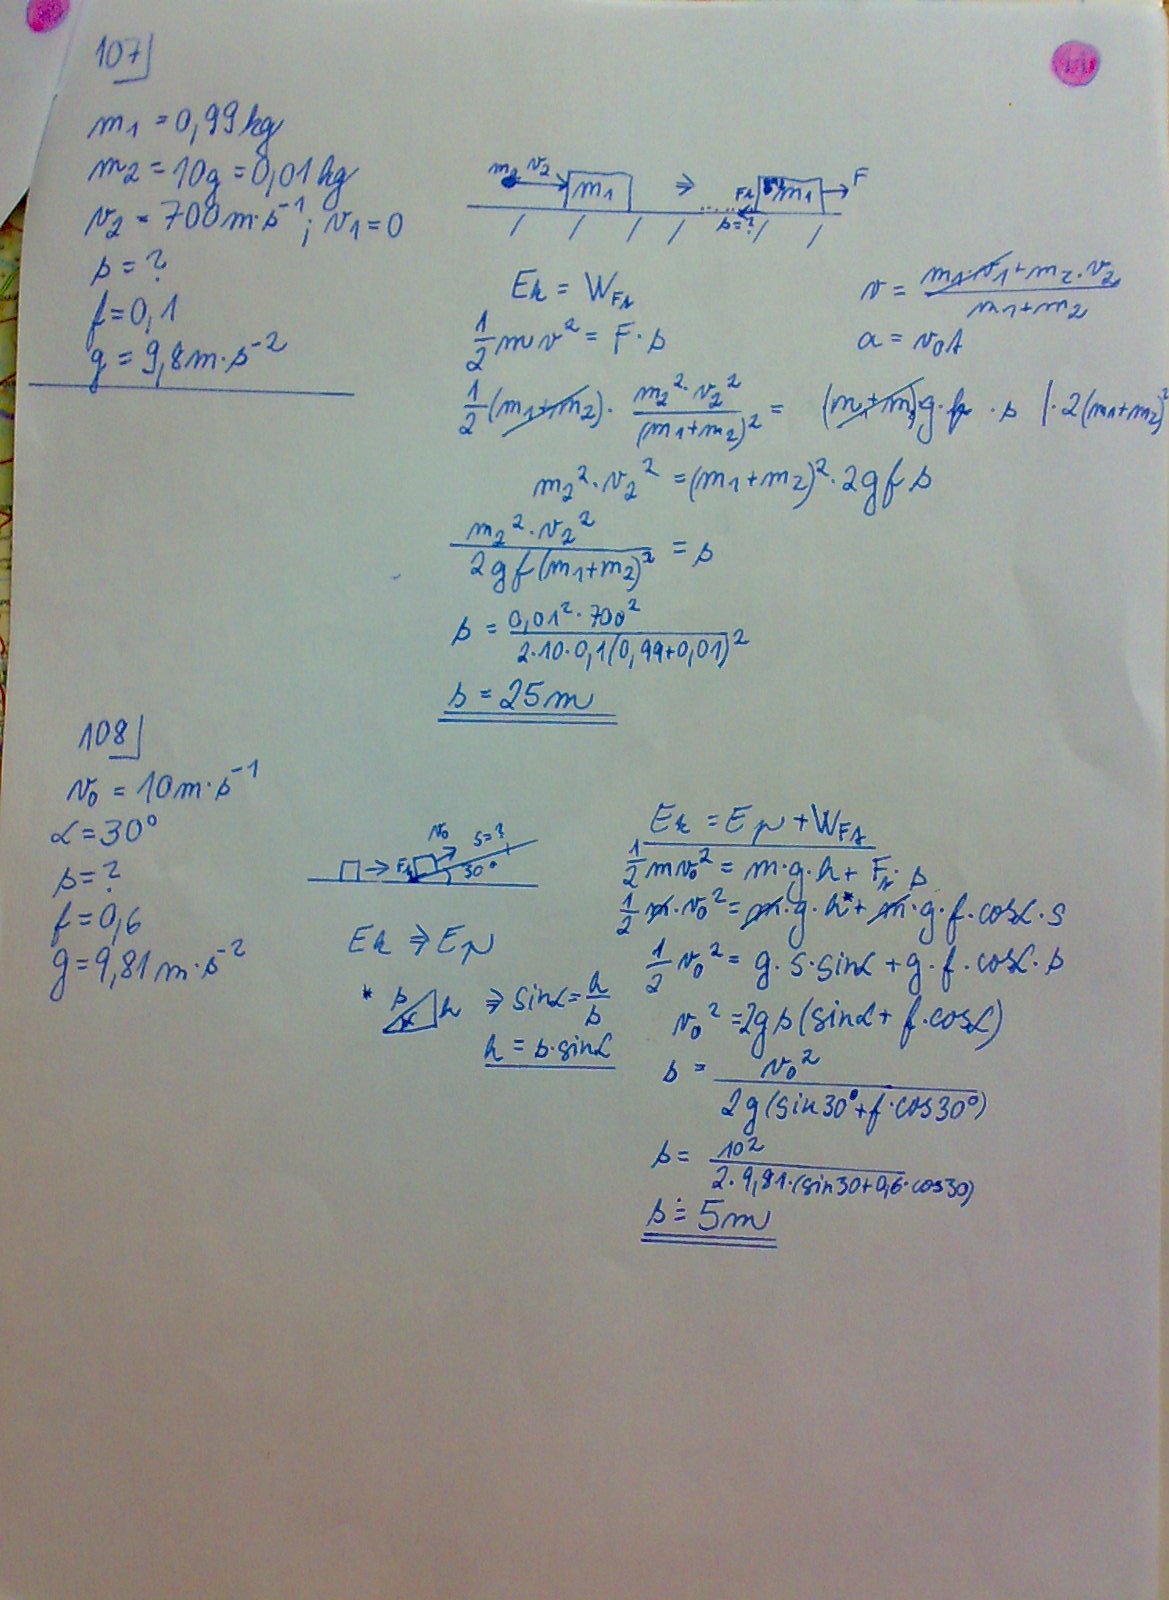 107
m₁ = 0,99 kg
m₂ = 10g = 0,01 kg
v₂ = 700 m·s⁻¹ ; v₁ = 0
s = ?
f = 0,1
g = 9,8 m·s⁻²
m₂ v₂ m₁ ⇒ Ft m₁ F
s = ?
Ek = W_Ft
½ m v² = F · s
v = (m₁·v₁ + m₂·v₂) / (m₁ + m₂)
a = v₀t
½ (m₁+m₂) · m₂²·v₂² / (m₁+m₂)² = (m₁+m₂)g·f · s |· 2(m₁+m₂)²
m₂²·v₂² = (m₁+m₂)² · 2gfs
m₂²·v₂² / 2gf(m₁+m₂)² = s
s = 0,01²·700² / 2·10·0,1(0,99+0,01)²
s = 25 m
108
v₀ = 10 m·s⁻¹
α = 30°
s = ?
f = 0,6
g = 9,81 m·s⁻²
v₀ s = ?
Ft 30°
Ek ⇒ Ep
* s α h ⇒ sinα = h/s
h = s·sinα
Ek = Ep + W_Ft
½ mv₀² = m·g·h + Ft · s
½ m·v₀² = m·g·h* + m·g·f·cosα·s
½ v₀² = g·s·sinα + g·f·cosα·s
v₀² = 2gs(sinα + f·cosα)
s = v₀² / 2g(sin30° + f·cos30°)
s = 10² / 2·9,81·(sin30+0,6·cos30)
s ≐ 5m